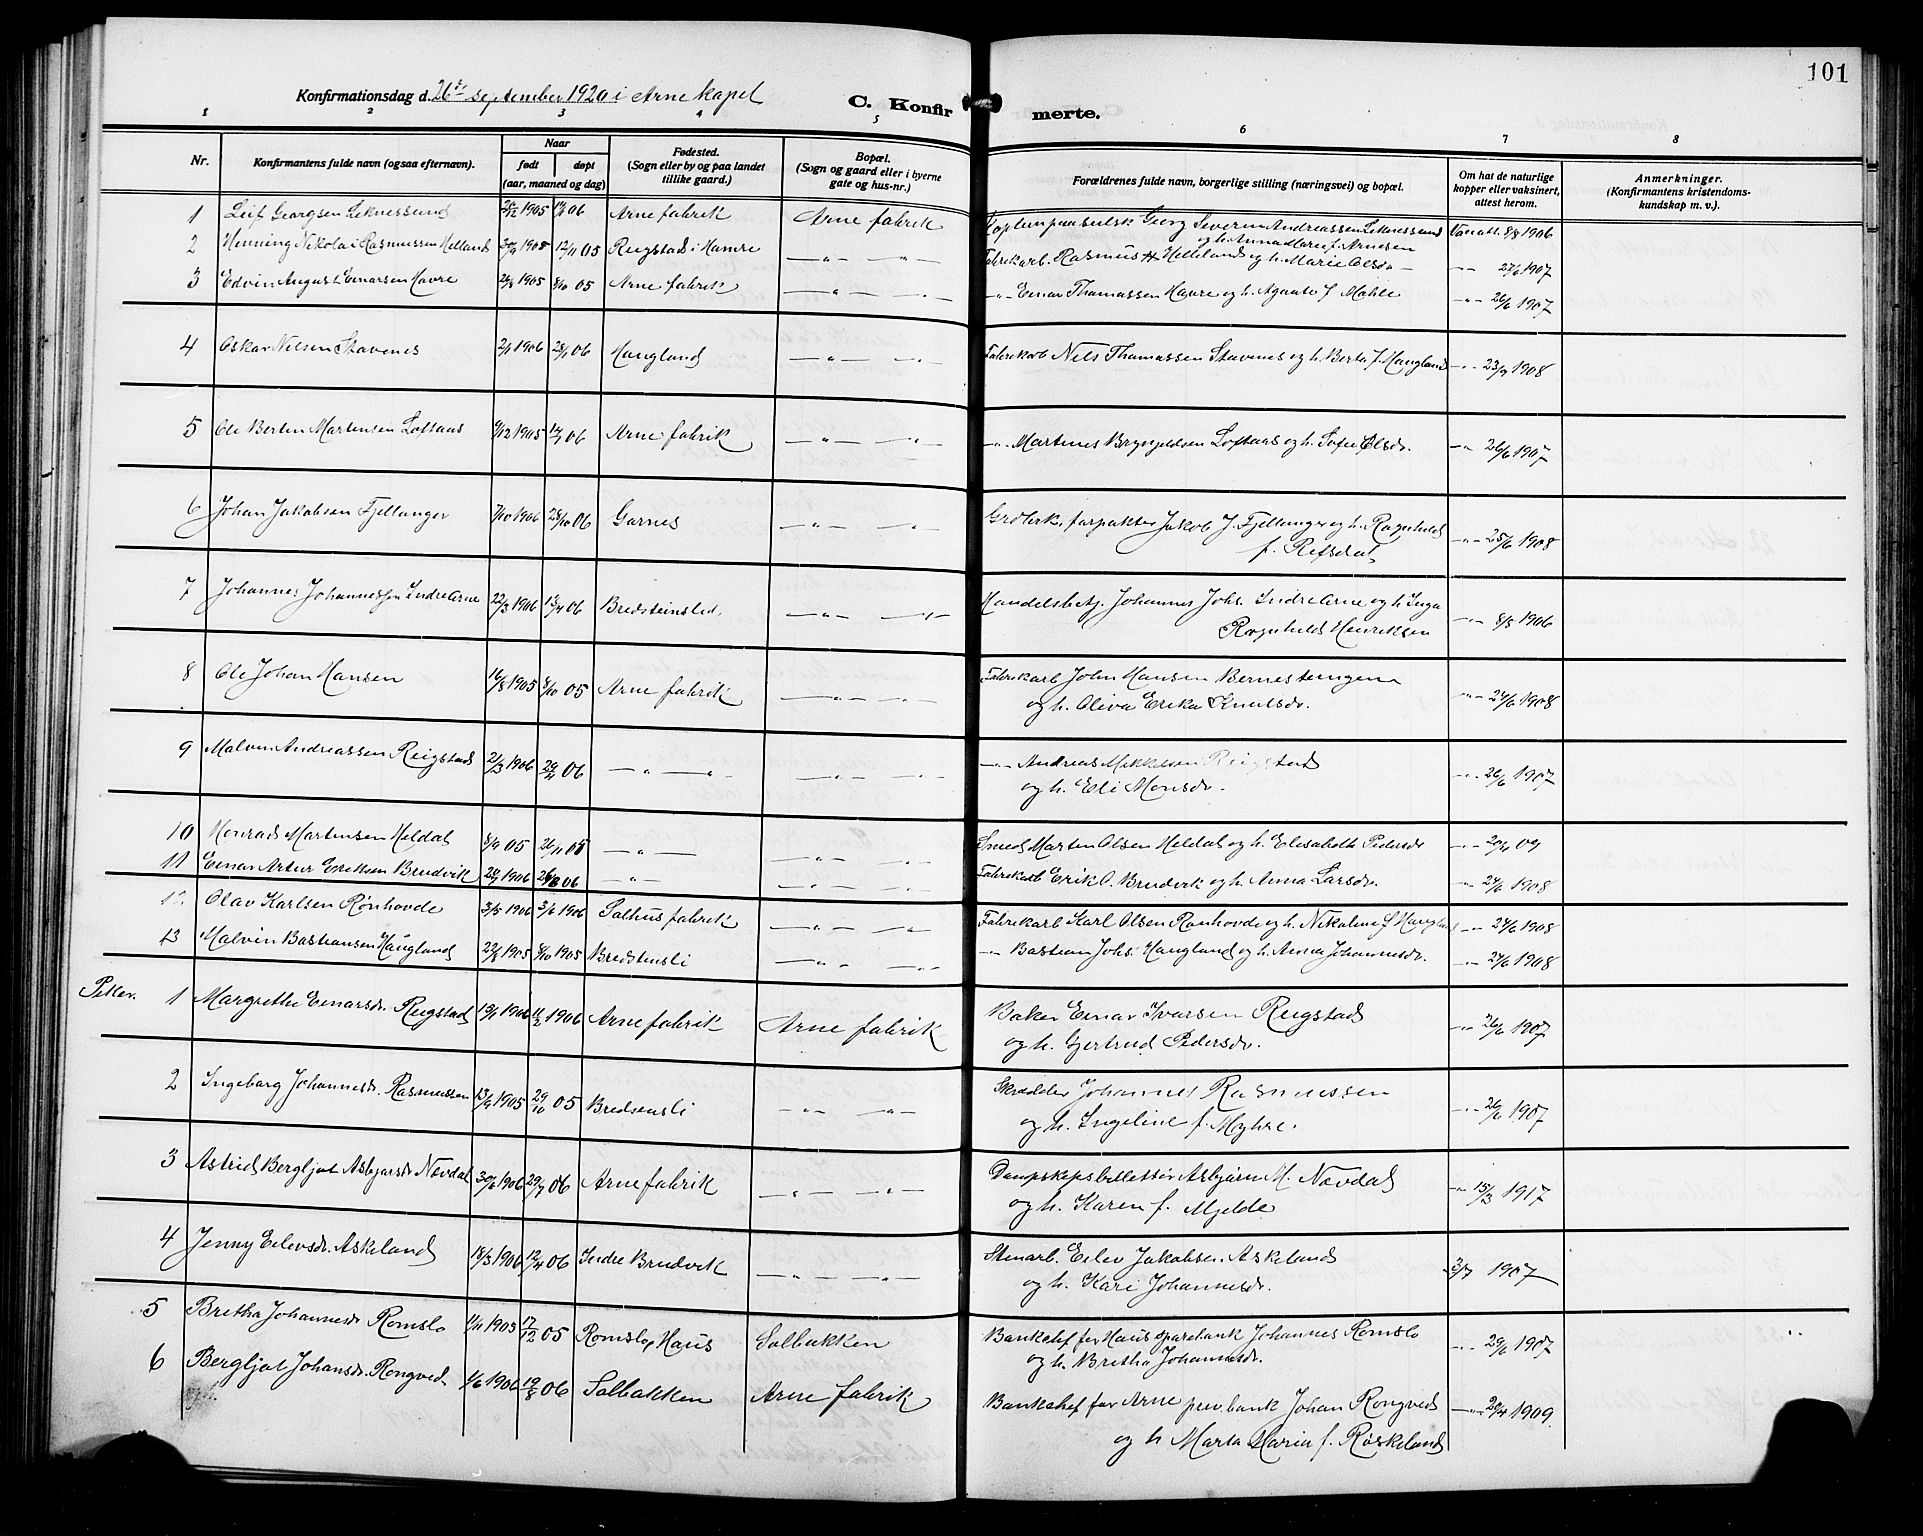 101
Konfirmationsdag d. 26de september 1920 i Arne kapel
C. Konfirmerte.
1 2 3 4 5 6 7 8
Nr. Konfirmantens fulde navn (ogsaa efternavn). Naar født døpt (aar, maaned og dag) Fødested. (Sogn eller by og paa landet tillike gaard.) Bopæl. (Sogn og gaard eller i byerne gate og hus-nr.) Forældrenes fulde navn, borgerlige stilling (næringsvei) og bopæl. Om hat de naturlige kopper eller vaksinert, attest herom. Anmerkninger. (Konfirmantens kristendomskundskap m. v.).
1 Leif Georgsen Leknessund 1905 06 Arne fabrik Arne fabrik Georg Severin Andreassen Leknessund og h. Anna f. Arnesen Vaxatt. 8/8 1906
2 Henning Nikolai Rasmussen Helland 1905 12/11 05 Reigstad i Hamre –"– –"– Fabrikarb. Rasmus Helleland og h. Marie Olsdr –"– 27/6 1907
3 Edvin August Einarsen Havre 1905 8/10 05 Arne fabrik –"– –"– –"– Einar Thomassen Havre og h. Agaate f. Mahle –"– 26/6 1907
4 Oskar Nilsen Stavenes 2/1 1906 28/1 06 Haugland –"– –"– Fabrikarb Nils Thomassen Stavenes og h. Berta f. Haugland –"– 1908
5 Ole Bertin Martinsen Loftaas 1905 06 Arne fabrik –"– –"– –"– Martines Brynjeldsen Loftaas og h. Sofie Olsdr. –"– 26/6 1907
6 Johan Jakobsen Fjellanger 7/10 1906 28/10 06 Garnes –"– –"– Jakob J. Fjellanger og h. Ragnhild f. Refsdal –"– 25/6 1908
7 Johannes Johannessen Indre Arne 22/3 1906 06 Bredsteinslid –"– –"– Handelsbetj. Johannes Johs. Indre Arne og h. Inga Ragnhild Henriksen –"– 8/8 1906
8 Ole Johan Hansen 16/8 1905 8/10 05 Arne fabrik –"– –"– Fabrikarb John Hansen Bernestangen og h. Oliva Erika Knutsdr. –"– 24/6 1908
9 Malvin Andreassen Reigstad 2/3 1906 06 –"– –"– –"– –"– –"– Andreas Mikkelsen Reigstad og h. Eli Monsdr. –"– 26/6 1907
10 Konrad Martinsen Heldal 8/9 05 26/11 05 –"– –"– –"– Smed Marten Olsen Heldal og h. Elisabeth Pedersdr –"– 09
11 Einar Artur Eriksen Brudvik 1906 06 –"– –"– –"– Fabrikarb Erik O. Brudvik og h. Anna Larsdr. –"– 24/6 1908
12. Olav Karlsen Rønhovde 3/5 1906 3/6 1906 Salhus fabrik –"– –"– Fabrikarb Karl Olsen Rønhovde og h. Nikoline f. Haugland –"– 24/6 1908
13 Malvin Bastiansen Haugland 22/8 1905 8/10 1905 Bredstensli –"– –"– –"– Bastian Johs. Haugland og h. Anna Johannesdr. –"– 24/6 1908
Piker. 1 Margrethe Einarsdr. Reigstad 19/1 1906 11/2 1906 Arne fabrik Arne fabrik Baker Einar Ivarsen Reigstad og h. Gertrud Pedersdr. –"– 26/6 1907
2 Ingeborg Johannesdr. Rasmussen 13/9 1905 29/10 05 Bredsensli –"– –"– Skrædder Johannes Rasmussen og h. Ingeline f. Myhre. –"– 26/6 1907
3 Astrid Bergljot Asbjørnsdr Nævdal 30/6 1906 29/7 06 Arne fabrik –"– –"– Dampskipsbilletør Asbjørn M. Nævdal og h. Karen f. Mjelde –"– 15/3 1917
4 Jenny Eilevsdr. Askeland 18/3 1906 12/4 06 Indre Brudvik –"– –"– Stenarb. Eilev Jakobsen Askeland og h. Kari Johannesdr. 3/7 1907
5 Bretha Johannesdr Romslo 1/11 1905 17/12 05 Romslo, Haus Solbakken Bankchef for Haus sparebank Johannes Romslo og h. Bretha Johannesdr. –"– 29/6 1907
6 Bergljot Johansdr. Rongved 1/6 1906 19/8 06 Solbakken Arne fabrik Bankchef for Arne priv. bank Johan Rongved og h Marta Maria f. Røskeland –"– 29/4 1909.